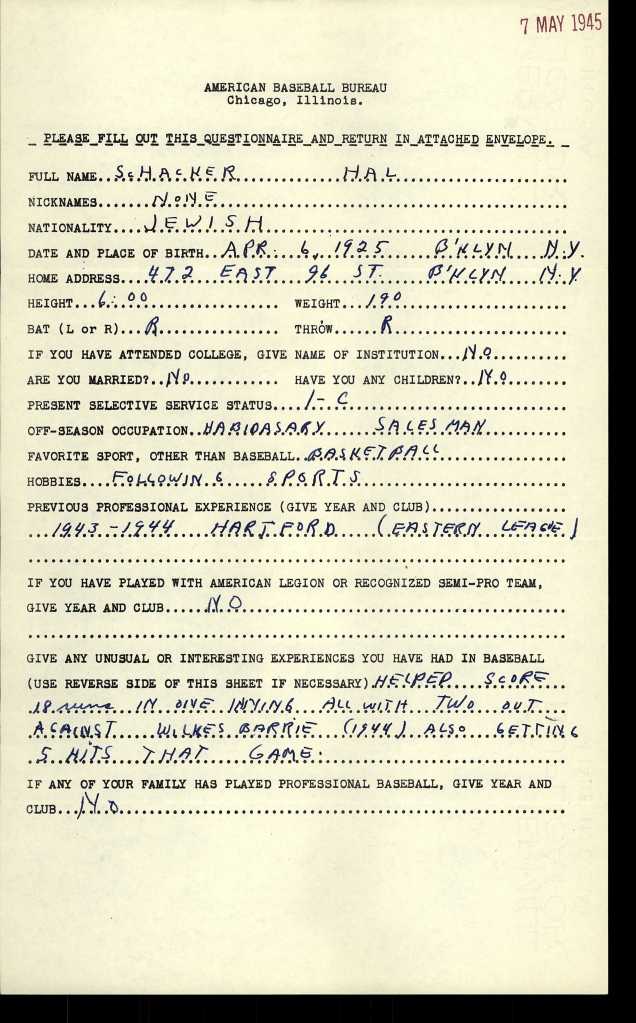 7 MAY 1945
AMERICAN BASEBALL BUREAU
Chicago, Illinois.
PLEASE FILL OUT THIS QUESTIONNAIRE AND RETURN IN ATTACHED ENVELOPE.
FULL NAME..ScHACKER HAL
NICKNAMES NONE
NATIONALITY JEWISH
DATE AND PLACE OF BIRTH..APR. 6, 1925 B'KLYN N.Y.
HOME ADDRESS...472 EAST 96 ST. B'KLYN N.Y
HEIGHT...6:00 WEIGHT...190
BAT (L or R)...R THROW.....R
IF YOU HAVE ATTENDED COLLEGE, GIVE NAME OF INSTITUTION...NO
ARE YOU MARRIED?..NO HAVE YOU ANY CHILDREN?..NO
PRESENT SELECTIVE SERVICE STATUS....1-C
OFF-SEASON OCCUPATION..HABIDASARY SALESMAN
FAVORITE SPORT, OTHER THAN BASEBALL..BASKETBALL
HOBBIES....FOLLOWING SPORTS
PREVIOUS PROFESSIONAL EXPERIENCE (GIVE YEAR AND CLUB)
1943-1944 HARTFORD (EASTERN LEAGE)
IF YOU HAVE PLAYED WITH AMERICAN LEGION OR RECOGNIZED SEMI-PRO TEAM,
GIVE YEAR AND CLUB.....NO
GIVE ANY UNUSUAL OR INTERESTING EXPERIENCES YOU HAVE HAD IN BASEBALL
(USE REVERSE SIDE OF THIS SHEET IF NECESSARY) HELPED SCORE
18 runs IN ONE INNING ALL WITH TWO OUT
AGAINST WILKES BARRIE (1944) ALSO GETTING
5 HITS THAT GAME.
IF ANY OF YOUR FAMILY HAS PLAYED PROFESSIONAL BASEBALL, GIVE YEAR AND
CLUB...NO